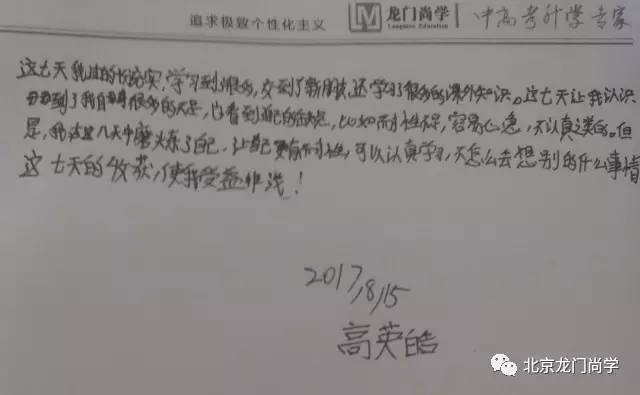 追求极致个性化主义
龙门尚学
Longmen Education
中高考升学专家
这七天我过的很充实,学习到很多,交到了新朋友,还学习了很多的课外知识。这七天让我认识
到了我自己很多的不足,也看到自己的缺点,比如耐性不足,容易心急,不认真之类的。但
是,我在这几天中磨炼了自己,让自己更有耐性,可以认真学习,不怎么去想别的什么事情
这七天的收获,使我受益非浅!
2017,8,15
高英皓
北京龙门尚学